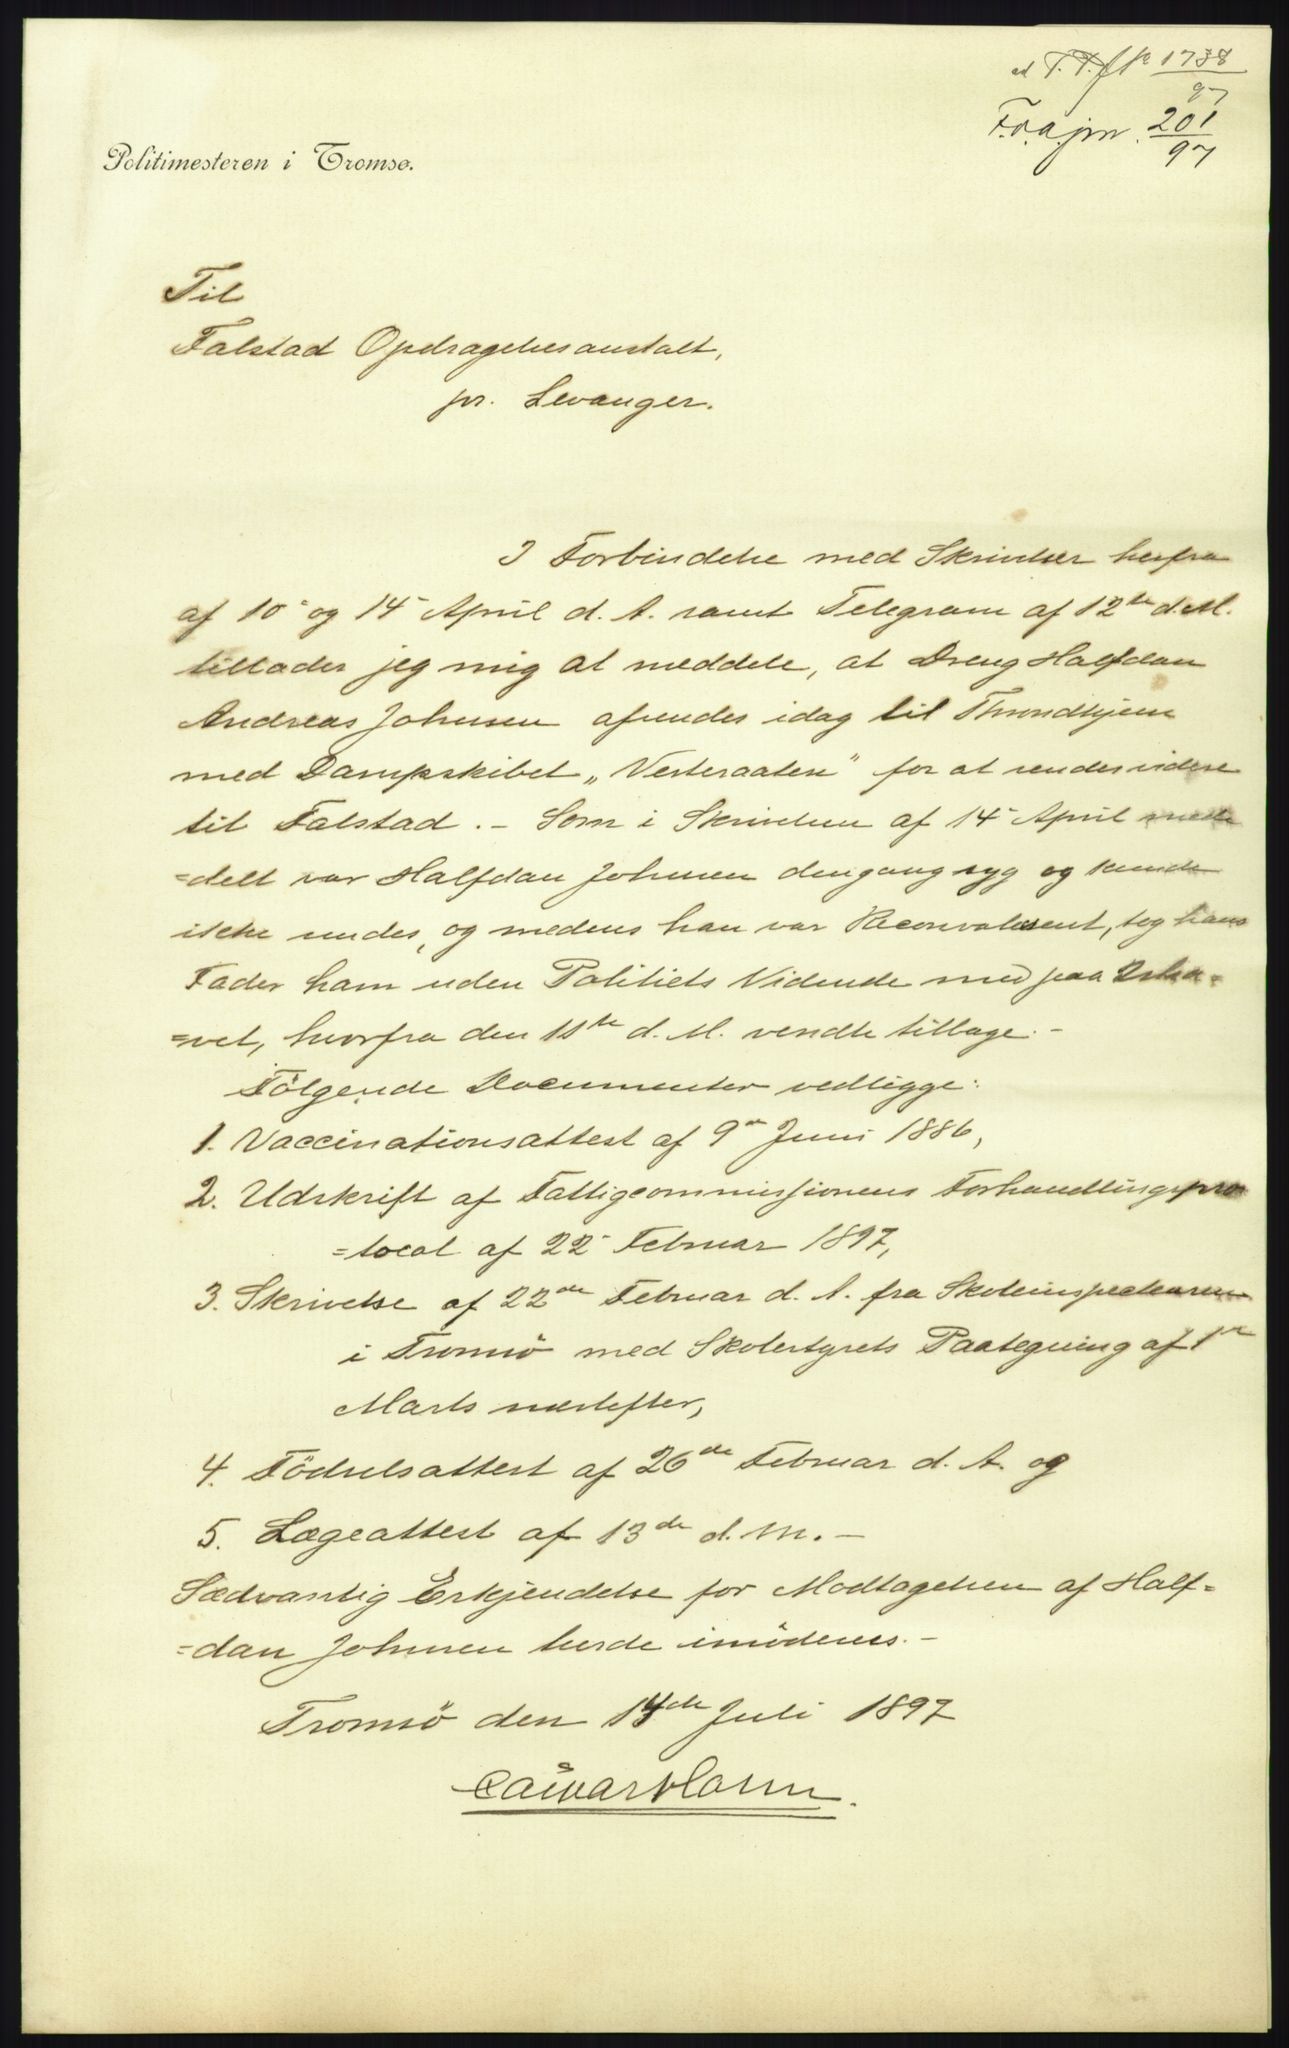 1738
97
F.o.a.jm. 201
97
Politimesteren i Tromsø.
Til
Falstad Opdragelsesanstalt,
pr. Levanger.
I Forbindelse med Skrivelser herfra
af 10de og 14de April d. A. samt Telegram af 12te d. M.
tillader jeg mig at meddele, at Dreng Halfdan
Andreas Johnsen afsendes idag til Throndhjem
med Dampskibet „Vesteraalen" for at sendes videre
til Falstad. - Som i Skrivelsen af 14de April med-
=delt var Halfdan Johnsen dengang syg og kunde
ikke sendes, og medens han var Reconvalescent, tog hans
Fader ham uden Politiets Vidende med paa Isha-
=vet, hvorfra den 11te d. M. vendte tilbage. -
Følgende Documenter vedligge:
1. Vaccinationsattest af 9de Juni 1886,
2. Udskrift af Fattigcommissionens Forhandlingspro
=tocol af 22de Februar 1897,
3. Skrivelse af 22de Februar d. A. fra Skoleinspecteuren
i Tromsö med Skolestyrets Paategning af 1ste
Marts næstefter,
4. Födselsattest af 26de Februar d. A. og
5. Lægeattest af 13de d. M. -
Sædvanlig Erkjendelse for Modtagelsen af Half=
=dan Johnsen turde imödesees. -
Tromsö den 14de Juli 1897